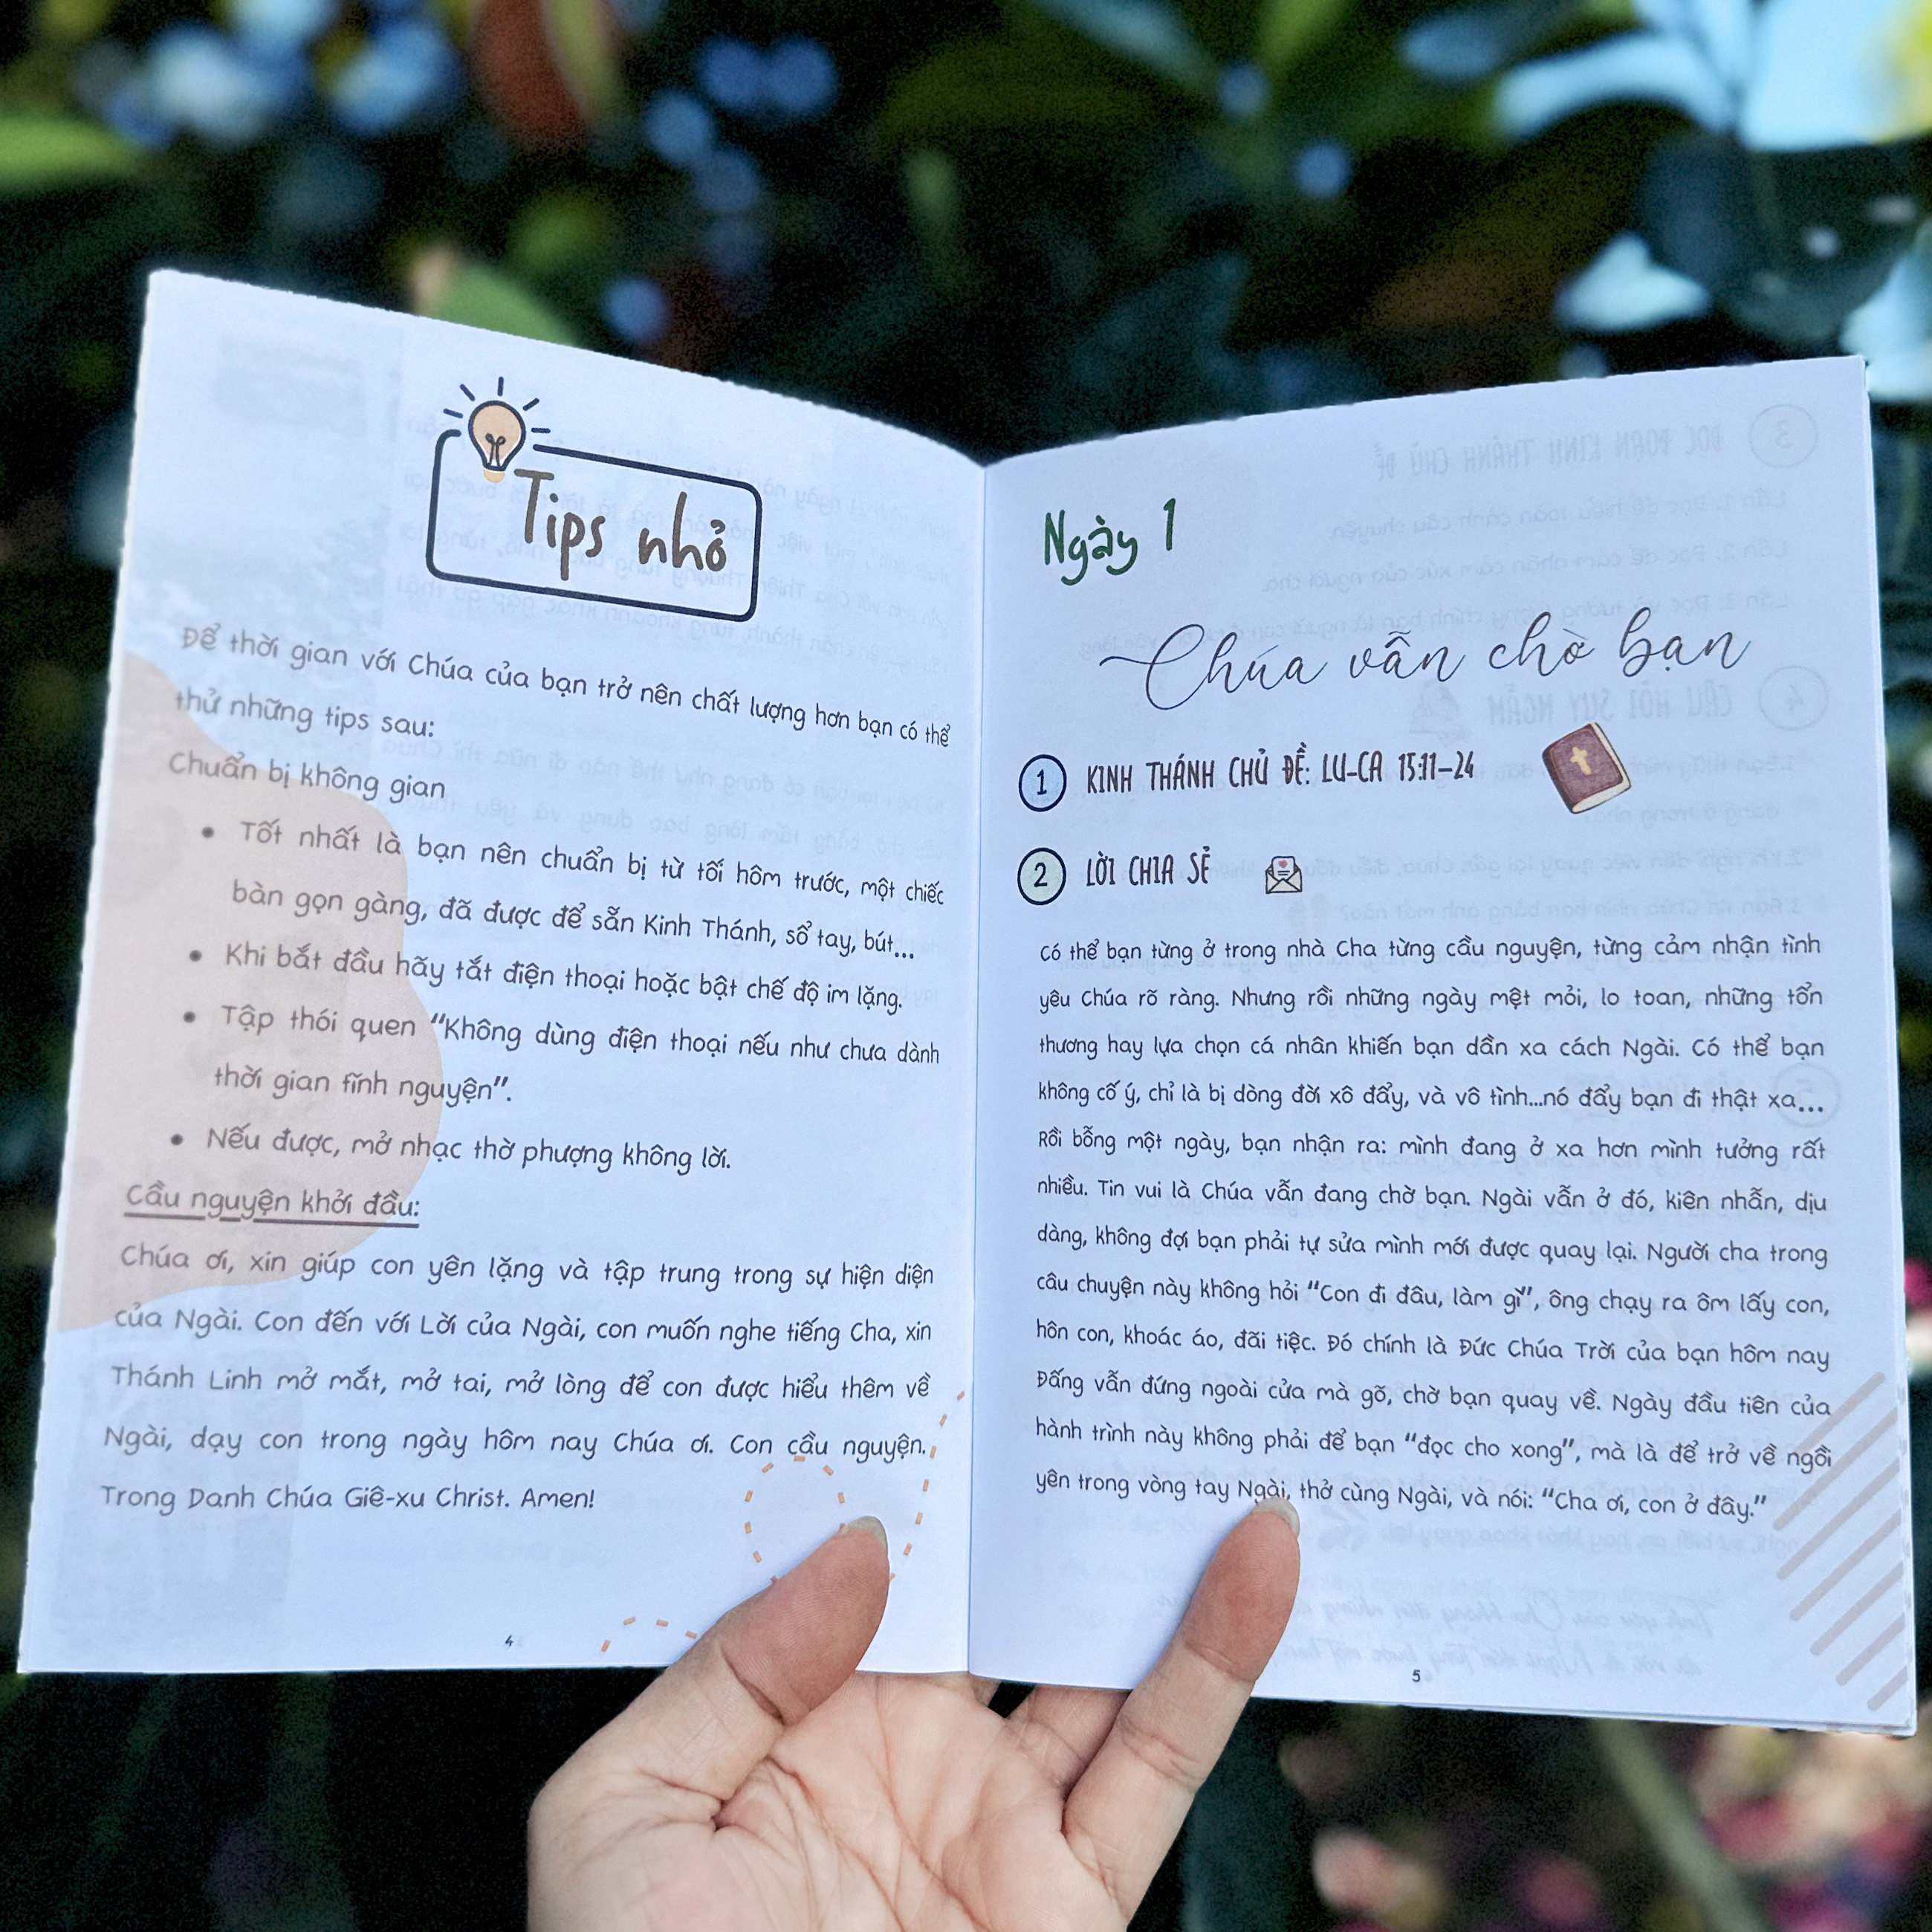 Tips nhỏ
Để thời gian với Chúa của bạn trở nên chất lượng hơn bạn có thể
thử những tips sau:
Chuẩn bị không gian
• Tốt nhất là bạn nên chuẩn bị từ tối hôm trước, một chiếc
bàn gọn gàng, đã được để sẵn Kinh Thánh, sổ tay, bút...
• Khi bắt đầu hãy tắt điện thoại hoặc bật chế độ im lặng.
• Tập thói quen “Không dùng điện thoại nếu như chưa dành
thời gian tĩnh nguyện”.
• Nếu được, mở nhạc thờ phượng không lời.
Cầu nguyện khởi đầu:
Chúa ơi, xin giúp con yên lặng và tập trung trong sự hiện diện
của Ngài. Con đến với Lời của Ngài, con muốn nghe tiếng Cha, xin
Thánh Linh mở mắt, mở tai, mở lòng để con được hiểu thêm về
Ngài, dạy con trong ngày hôm nay Chúa ơi. Con cầu nguyện.
Trong Danh Chúa Giê-xu Christ. Amen!
4
Ngày 1
Chúa vẫn chờ bạn
1 KINH THÁNH CHỦ ĐỀ: LU-CA 15:11-24
2 LỜI CHIA SẺ
Có thể bạn từng ở trong nhà Cha từng cầu nguyện, từng cảm nhận tình
yêu Chúa rõ ràng. Nhưng rồi những ngày mệt mỏi, lo toan, những tổn
thương hay lựa chọn cá nhân khiến bạn dần xa cách Ngài. Có thể bạn
không cố ý, chỉ là bị dòng đời xô đẩy, và vô tình...nó đẩy bạn đi thật xa...
Rồi bỗng một ngày, bạn nhận ra: mình đang ở xa hơn mình tưởng rất
nhiều. Tin vui là Chúa vẫn đang chờ bạn. Ngài vẫn ở đó, kiên nhẫn, dịu
dàng, không đợi bạn phải tự sửa mình mới được quay lại. Người cha trong
câu chuyện này không hỏi “Con đi đâu, làm gì”, ông chạy ra ôm lấy con,
hôn con, khoác áo, đãi tiệc. Đó chính là Đức Chúa Trời của bạn hôm nay
Đấng vẫn đứng ngoài cửa mà gõ, chờ bạn quay về. Ngày đầu tiên của
hành trình này không phải để bạn “đọc cho xong”, mà là để trở về ngồi
yên trong vòng tay Ngài, thở cùng Ngài, và nói: “Cha ơi, con ở đây.”
5